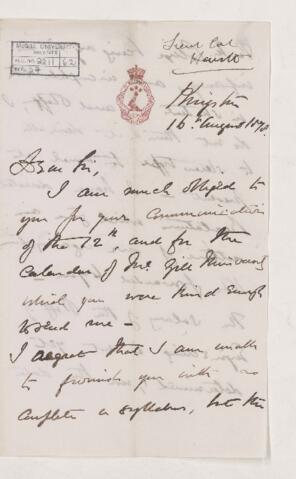 McGILL UNIVERSITY
ARCHIVES
ACC. NO. 2211
REF. 54
Lieut Col
Hewett
Kingston
16th August 1876.
Dear Sir,
I am much obliged to
you for your communication
of the 12th, and for the
Calendar of McGill University
which you were kind enough
to send me —
I regret that I am unable
to furnish you with so
complete a syllabus, but the